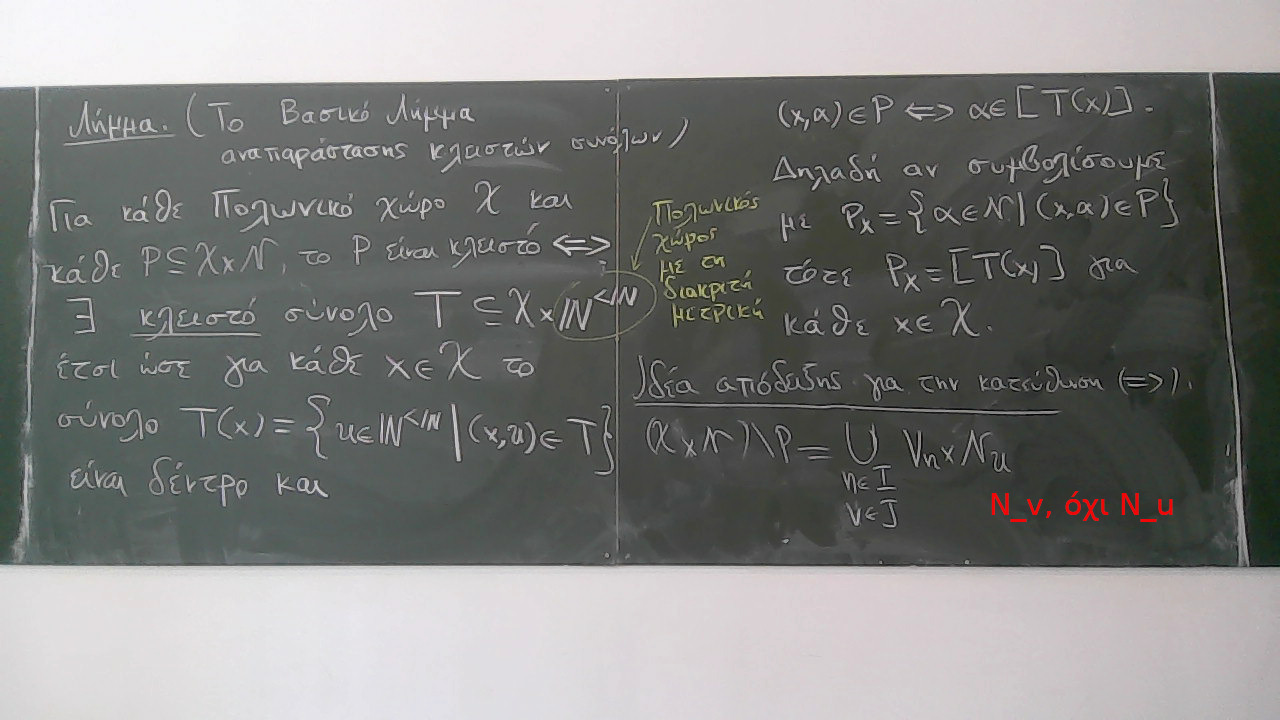 Λήμμα. (Το Βασικό Λήμμα
αναπαράστασης κλειστών συνόλων)
Για κάθε Πολωνικό χώρο X και
κάθε P ⊆ X × N, το P είναι κλειστό ⟺
∃ κλειστό σύνολο T ⊆ X × ℕ^{<ℕ}
έτσι ώσε για κάθε x ∈ X το
σύνολο T(x) = {u ∈ ℕ^{<ℕ} | (x,u) ∈ T}
είναι δέντρο και
Πολωνικός
χώρος
με τη
διακριτή
μετρική
(x,α) ∈ P ⟺ α ∈ [T(x)].
Δηλαδή αν συμβολίσουμε
με P_x = {α ∈ N | (x,α) ∈ P}
τότε P_x = [T(x)] για
κάθε x ∈ X.
Ιδέα απόδειξης για την κατεύθυνση (⟹).
(X × N) \ P = ∪ V_n × N_u
n ∈ I
v ∈ J
N_v, όχι N_u